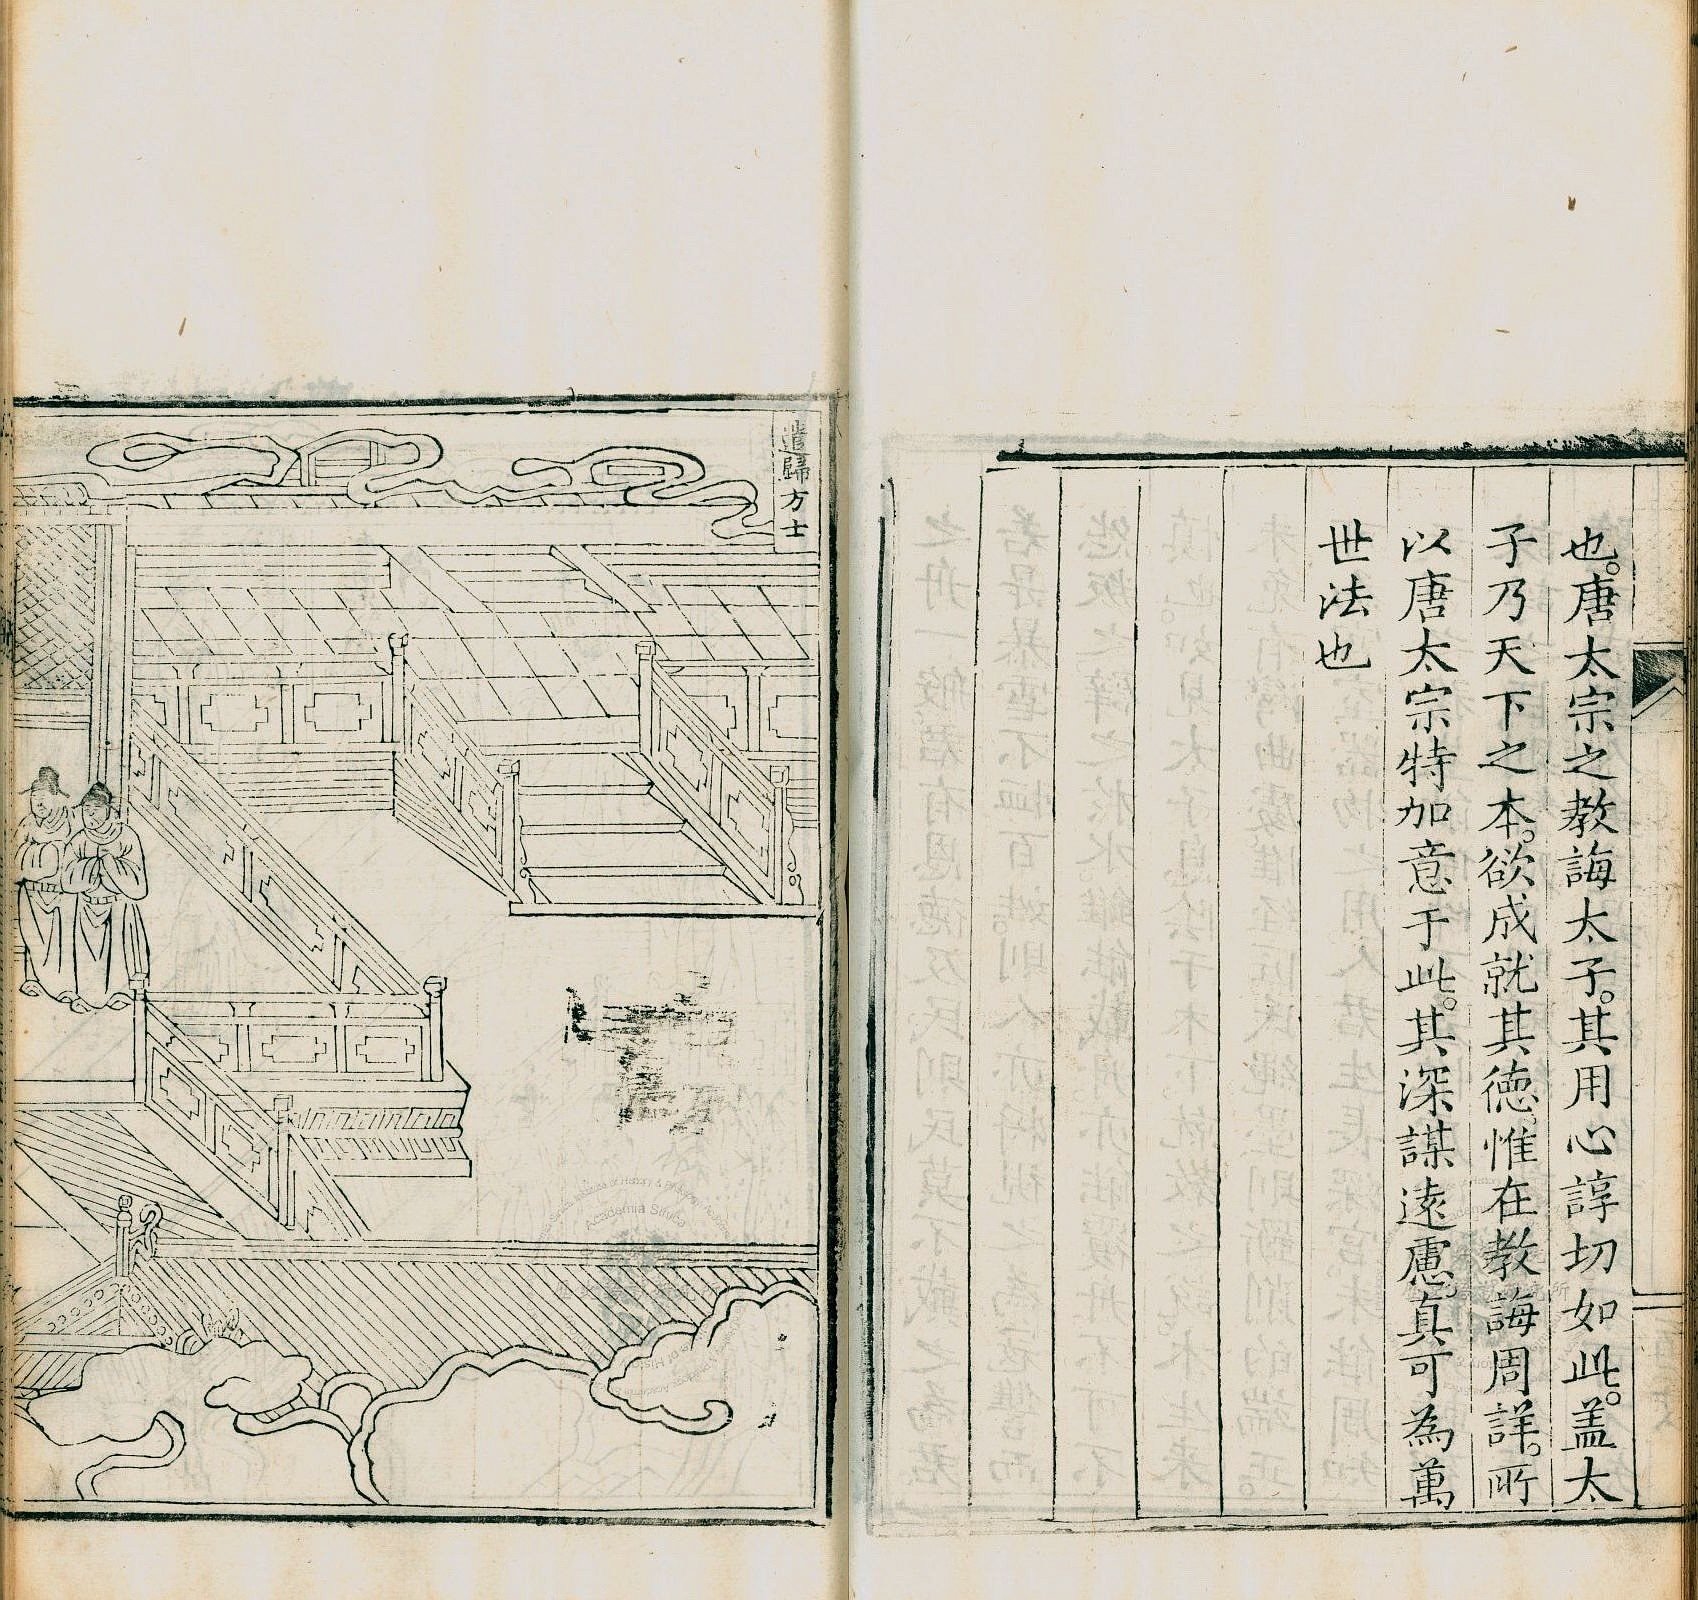 也。唐太宗之教誨太子。其用心諄切如此。盖太
子乃天下之本。欲成就其德。惟在教誨周詳。所
以唐太宗特加意于此。其深謀遠慮真可為萬
世法也
遣歸方士
Academia Sinica